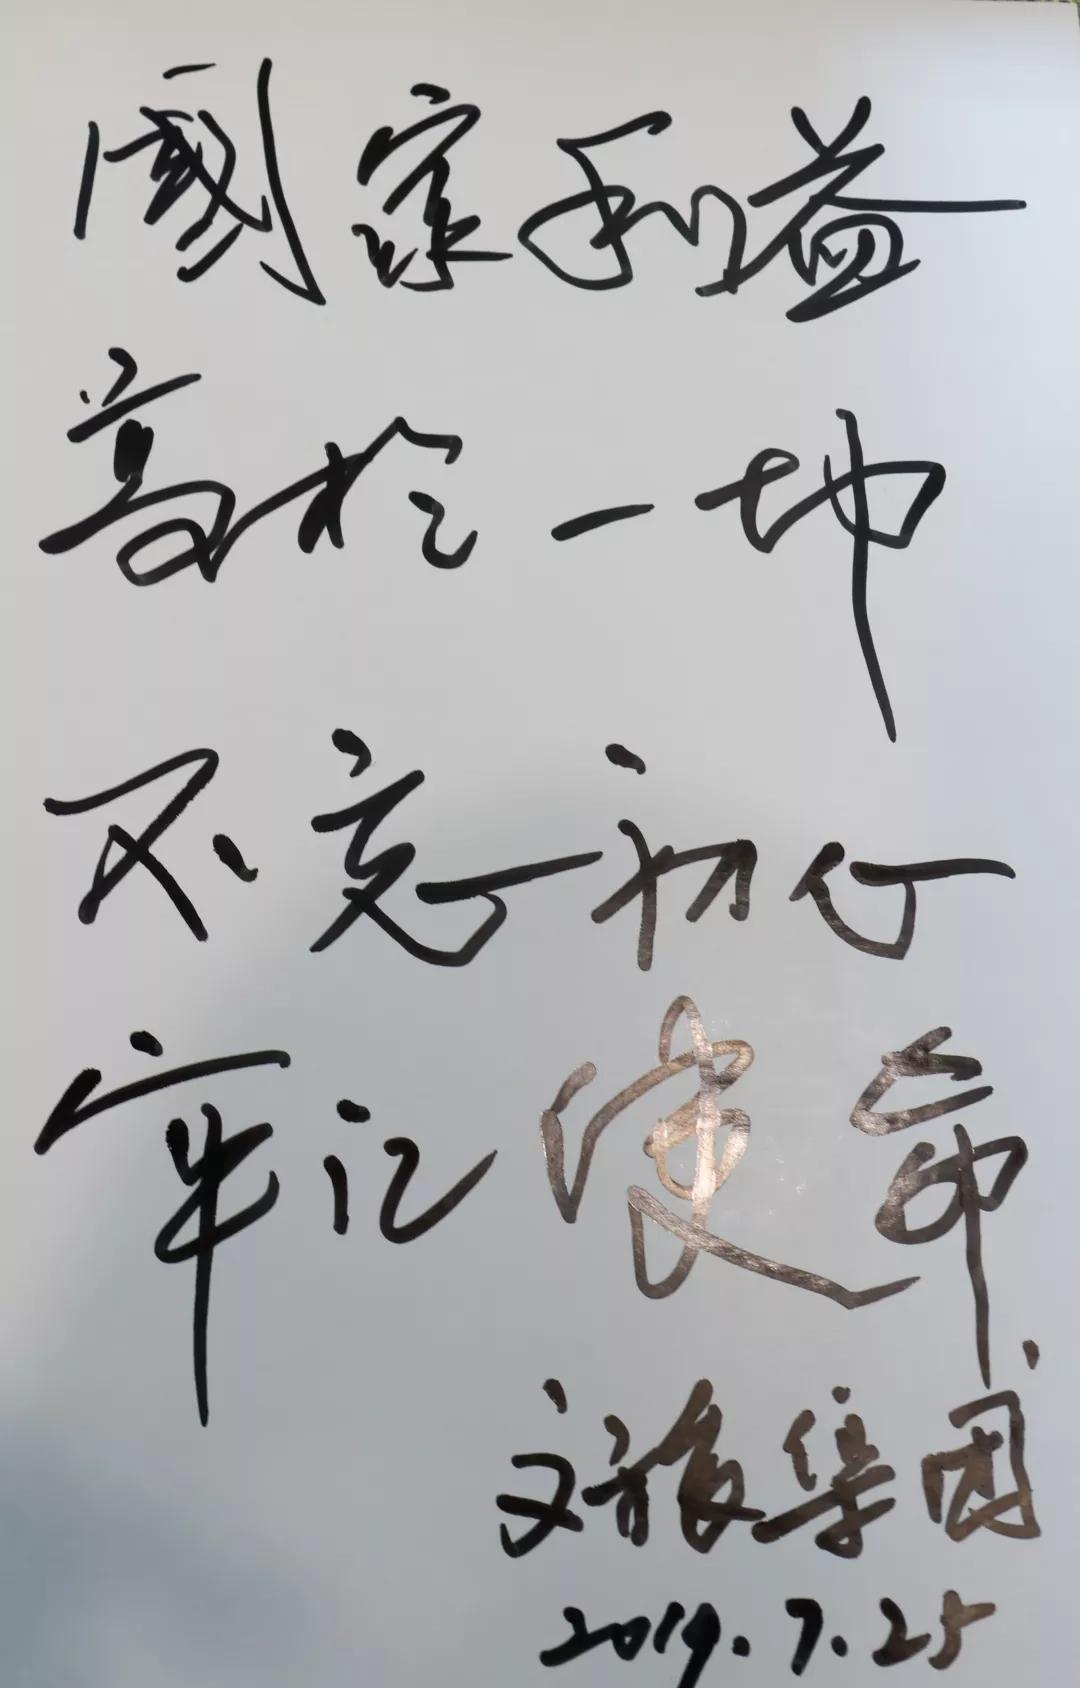 國家利益
高於一切
不忘初心
牢记使命
文旅集团
2019.7.25